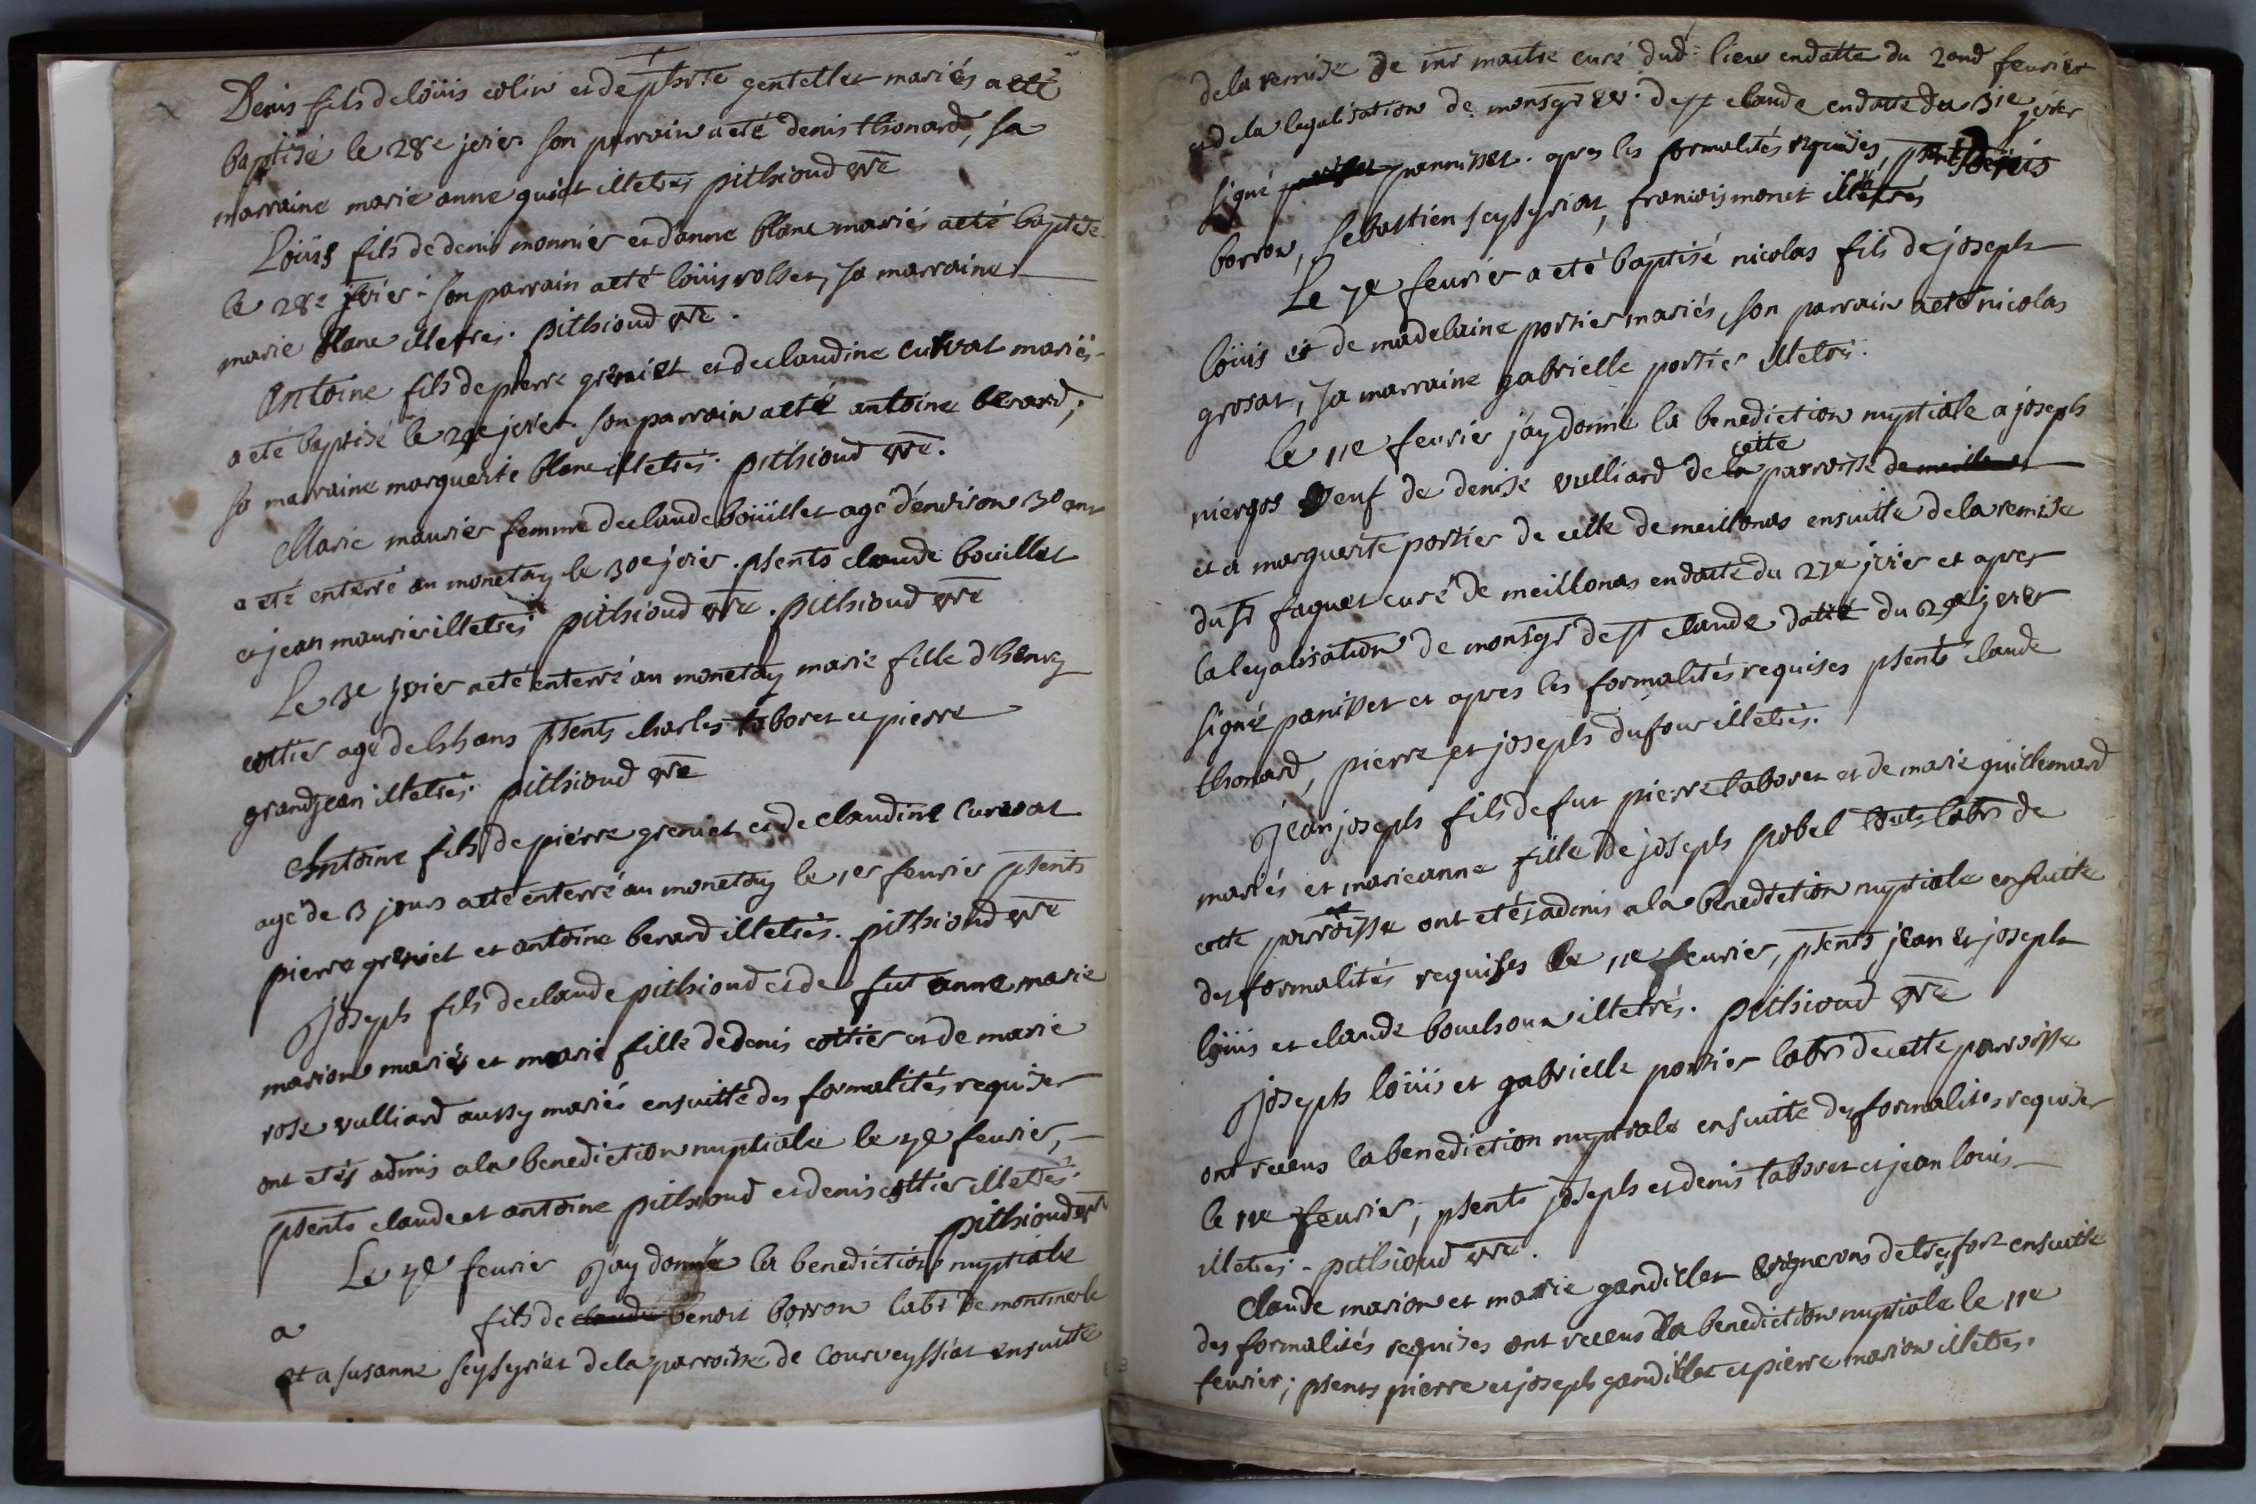 Denis fils de loüis colin et de phte gentellet mariés a eté
baptisé le 28e jvier son parrain a eté denis thonard, sa
marraine marie anne guiot illetrés pithioud vre
Loüis fils de denis monnier et d'anne blanc mariés a eté baptisé
le 28e jvier. son parrain a eté loüis rollet, sa marraine
marie blanc illetrés. pithioud vre.
Antoine fils de pierre greniet et de claudine curvat mariés
a eté baptisé le 29e jvier. son parrain a eté antoine berard;
sa marraine marguerite blanc illetrés. pithioud vre.
Marie maurier femme de claude boüillet agé d'environ 30 ans
a eté enterré au monetay le 30e jvier. psents claude bouillet
et jean maurier illetrés pithioud vre. pithioud vre
Le 31e jvier a eté enterré au monetay marie fille d'henry
cottier agé de ans psents charles taboret et pierre
grandjean illetrés. pithioud vre
Antoine fils de pierre greniet et de claudine curvat
agé de 3 jours a eté enterré au monetay le 1er fevrier psents
pierre greniet et antoine berard illetrés. pithioud vre
Joseph fils de claude pithioud et de fut anne marie
marion mariés et marie fille de denis cottier et de marie
rose vulliard aussy mariés ensuitte des formalités requises
ont etés admis a la benediction nuptiale le 7e fevrier,
psents claude et antoine pithioud et denis cottier illetrés.
pithioud vre
Le 7e fevrier j'ay donné la benediction nuptiale
a fils de claude benoit borron labr de montmerle
et a susanne seysyriat de la parroisse de courveyssiat ensuitte
de la remise de mr maitre curé dud. lieu en datte du 2ond fevrier
et de la legalisation de monsgr ev. de st claude en datte du 31e jvier
signé pannisset. apres les formalités requises, psents denis
borron, sebastien seysyriat, francois monet illetrés
Le 7e fevrier a eté baptisé nicolas fils de joseph
loüis et de madelaine portier mariés, son parrain a eté nicolas
grosat, sa marraine gabrielle portier illetrés.
le 11e fevrier j'ay donné la benediction nuptiale a joseph
niergos veuf de denise vulliard de la cette parroisse de meillonas
et a marguerite portier de celle de meillonas ensuitte de la remise
du sr faguet curé de meillonas en datte du 27e jvier et apres
la legalisation de monsgr de st claude datté du 29e jvier
signé panisset et apres les formalités requises psents claude
thonard, pierre et joseph dufour illetrés.
Jean joseph fils de fut pierre taboret et de marie guillemard
mariés et marieanne fille de joseph pobel labrs de
cette parroisse ont etés admis a la benediction nuptiale ensuitte
des formalités requises le 11e fevrier, psents jean et joseph
loüis et claude bouchoux illetrés. pithioud vre
Joseph loüis et gabrielle portier labrs de cette parroisse
ont receus la benediction nuptiale ensuitte des formalités requises
le 11e fevrier, psents joseph et denis taboret et jean louis
illetrés. pithioud vre.
Claude marion et marie gandillet vignerons de treffort ensuitte
des formalités requises ont receus la benediction nuptiale le 11e
fevrier; psents pierre et joseph gandillet et pierre marion illetrés.